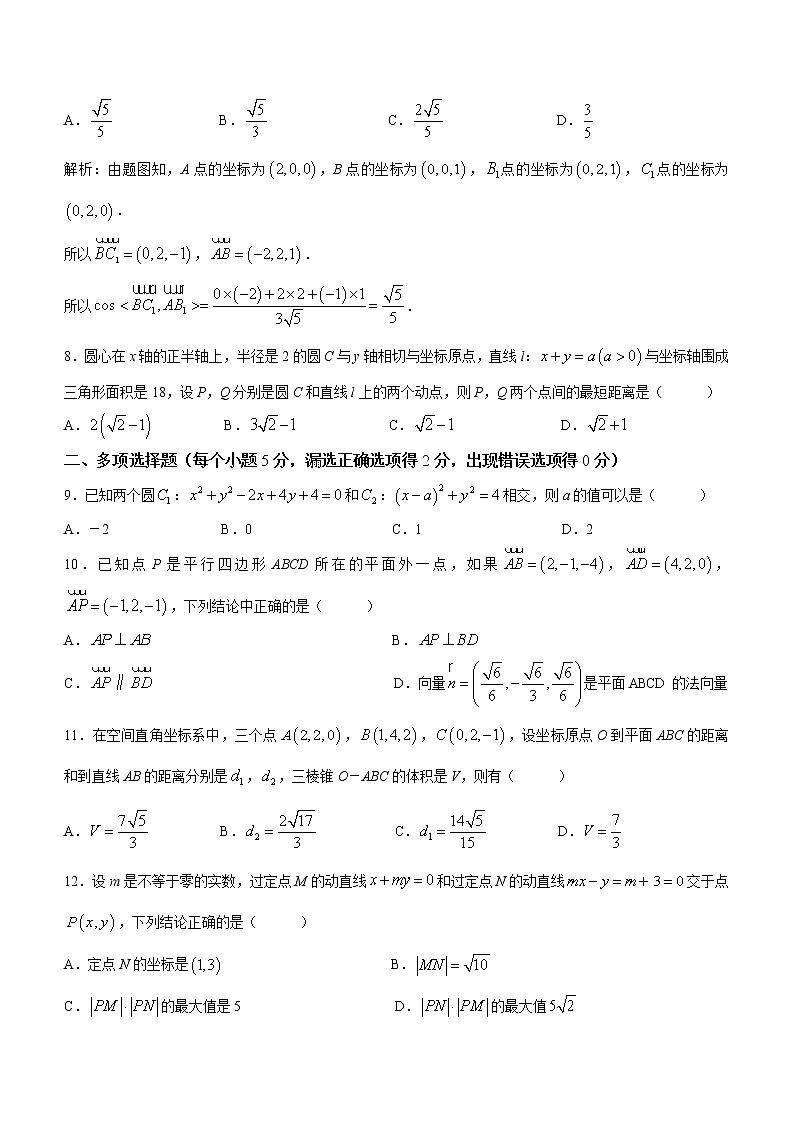 A. √5/5 B. √5/3 C. 2√5/5 D. 3/5
解析：由题图知，A 点的坐标为 (2,0,0)，B 点的坐标为 (0,0,1)，B₁点的坐标为 (0,2,1)，C₁点的坐标为
(0,2,0)．
所以 BC₁ = (0,2,−1)，AB = (−2,2,1)．
所以 cos < BC₁, AB₁ >= (0×(−2)+2×2+(−1)×1)/(3√5) = √5/5．
8．圆心在 x 轴的正半轴上，半径是 2 的圆 C 与 y 轴相切与坐标原点，直线 l：x + y = a (a > 0) 与坐标轴围成
三角形面积是 18，设 P，Q 分别是圆 C 和直线 l 上的两个动点，则 P，Q 两个点间的最短距离是（ ）
A. 2(√2−1) B. 3√2−1 C. √2−1 D. √2+1
二、多项选择题（每个小题 5 分，漏选正确选项得 2 分，出现错误选项得 0 分）
9．已知两个圆 C₁：x² + y² − 2x + 4y + 4 = 0 和 C₂：(x − a)² + y² = 4 相交，则 a 的值可以是（ ）
A．－2 B．0 C．1 D．2
10．已知点 P 是平行四边形 ABCD 所在的平面外一点，如果 AB = (2,−1,−4)，AD = (4,2,0)，
AP = (−1,2,−1)，下列结论中正确的是（ ）
A．AP ⊥ AB B．AP ⊥ BD
C．AP ∥ BD D．向量 n = (√6/6, −√6/3, √6/6) 是平面 ABCD 的法向量
11．在空间直角坐标系中，三个点 A(2,2,0)，B(1,4,2)，C(0,2,−1)，设坐标原点 O 到平面 ABC 的距离
和到直线 AB 的距离分别是 d₁，d₂，三棱锥 O－ABC 的体积是 V，则有（ ）
A．V = 7√5/3 B．d₂ = 2√17/3 C．d₁ = 14√5/15 D．V = 7/3
12．设 m 是不等于零的实数，过定点 M 的动直线 x + my = 0 和过定点 N 的动直线 mx − y = m + 3 = 0 交于点
P(x, y)，下列结论正确的是（ ）
A．定点 N 的坐标是 (1,3) B．|MN| = √10
C．|PM|·|PN| 的最大值是 5 D．|PN|·|PM| 的最大值 5√2